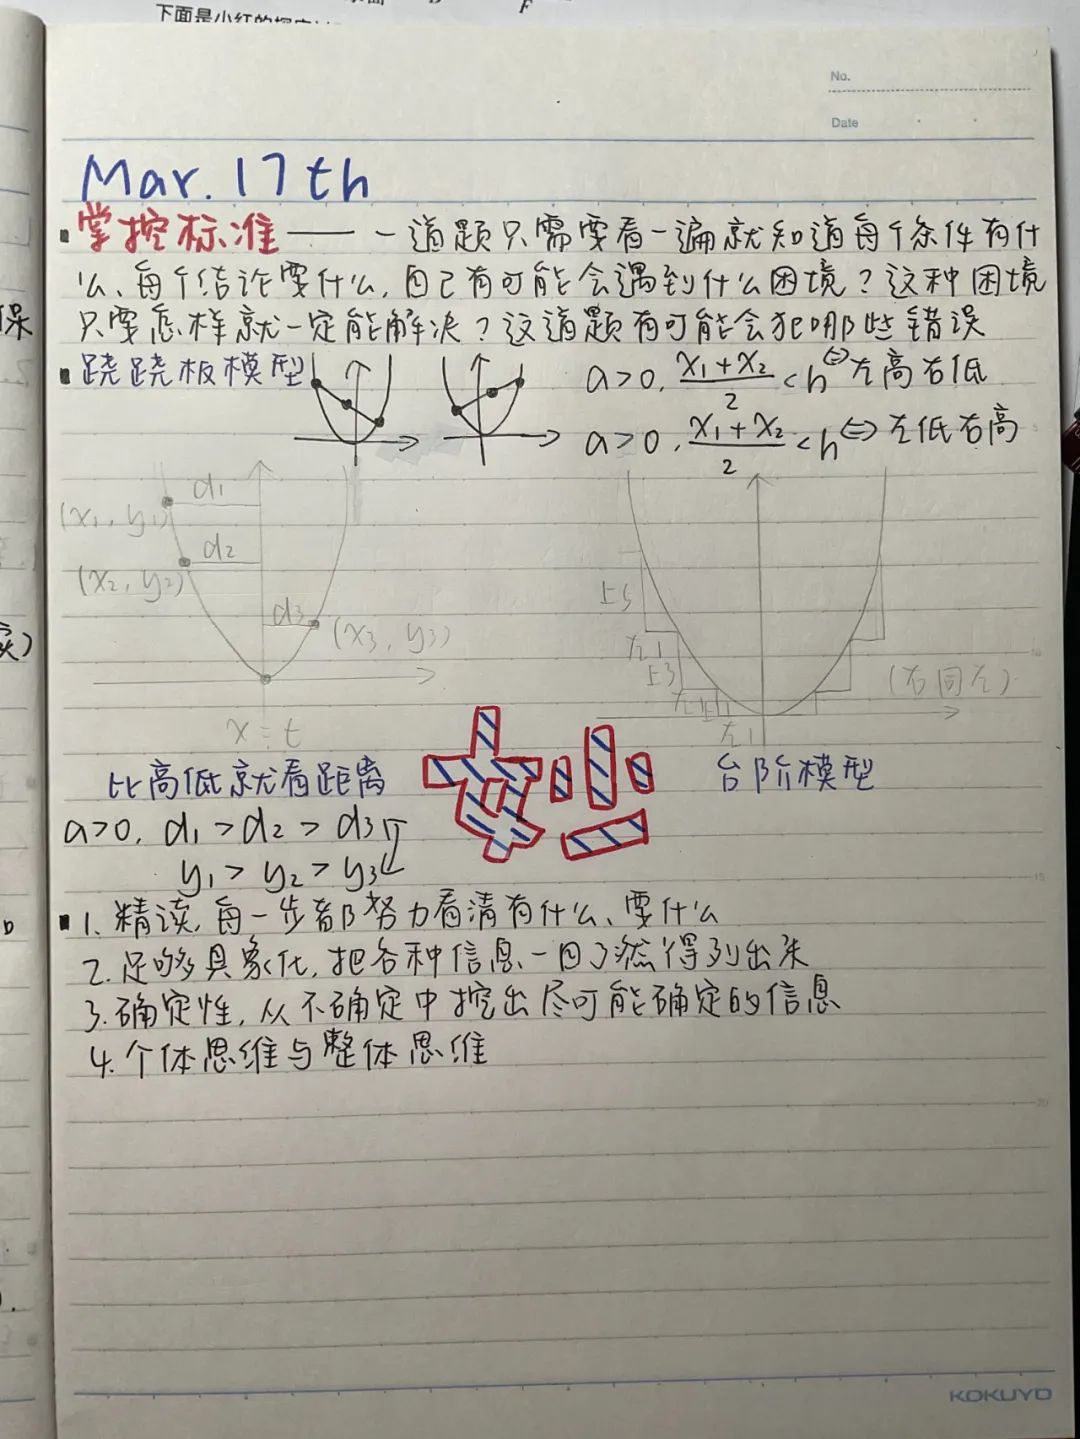 下面是小红的探究
F
No.
Date
Mar. 17th
掌控标准——一道题只需要看一遍就知道每个条件有什
么、每个结论要什么,自己有可能会遇到什么困境?这种困境
只要怎样就一定能解决?这道题有可能会犯哪些错误
跷跷板模型
a>0, (x₁+x₂)/2 <h⇔左高右低
a>0, (x₁+x₂)/2 <h⇔左低右高
d₁
(x₁, y₁)
d₂
(x₂, y₂)
d₃
(x₃, y₃)
x=t
上5
左1
上3
左1
上1
左1
(右同左)
比高低就看距离
台阶模型
a>0, d₁>d₂>d₃
y₁>y₂>y₃
1. 精读,每一步都努力看清有什么、要什么
2. 足够具象化,把各种信息一目了然得列出来
3. 确定性,从不确定中挖出尽可能确定的信息
4. 个体思维与整体思维
保
实)
5
10
15
20
KOKUYO